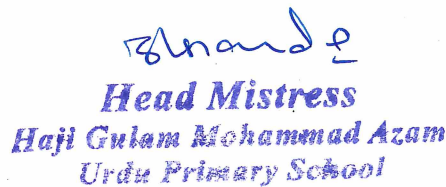 Head Mistress
Haji Gulam Mohammad Azam
Urdu Primary School